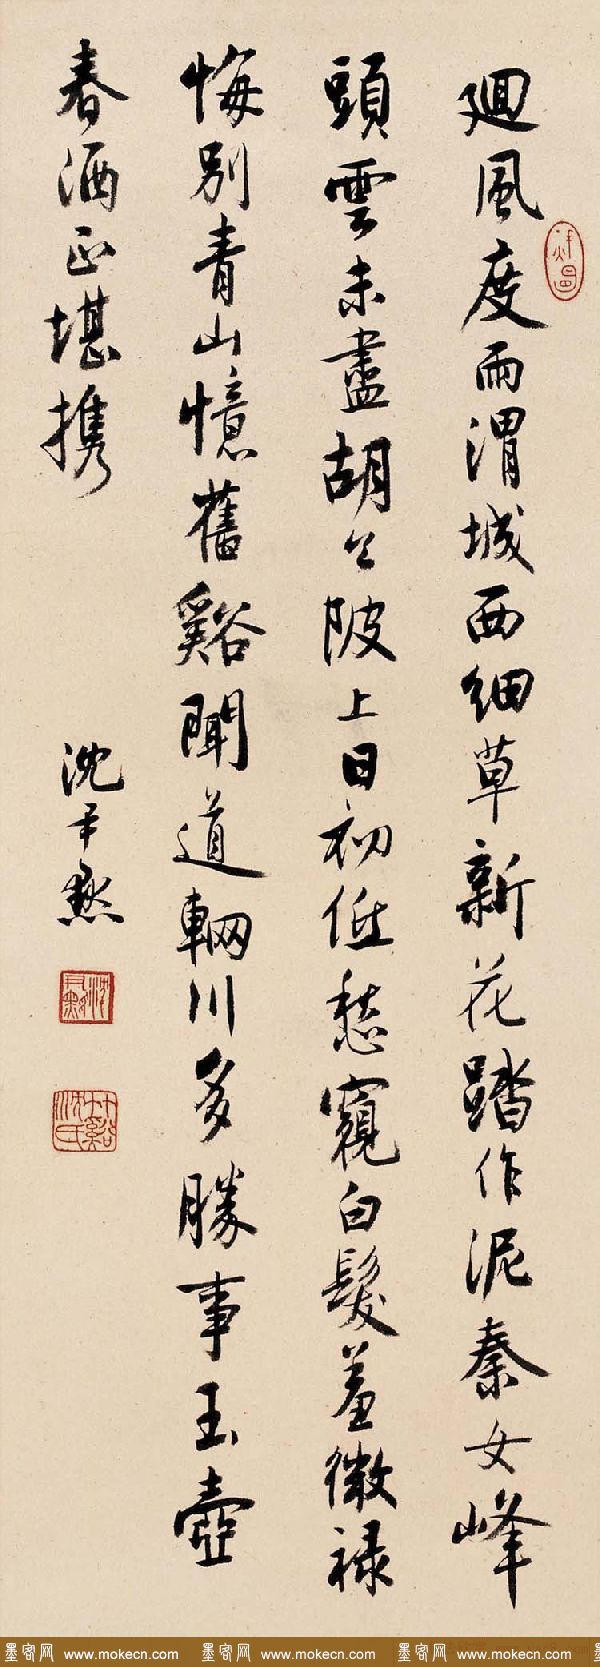 廻風度雨渭城西細草新花踏作泥秦女峰
頭雲未盡胡公陂上日初低愁窺白髮羞微祿
悔別青山憶舊谿聞道輞川多勝事玉壺
春酒正堪携
沈尹默
沈尹默
竹谿沈氏
墨客网 www.mokecn.com 墨客网 www.mokecn.com 墨客网 www.mokecn.com